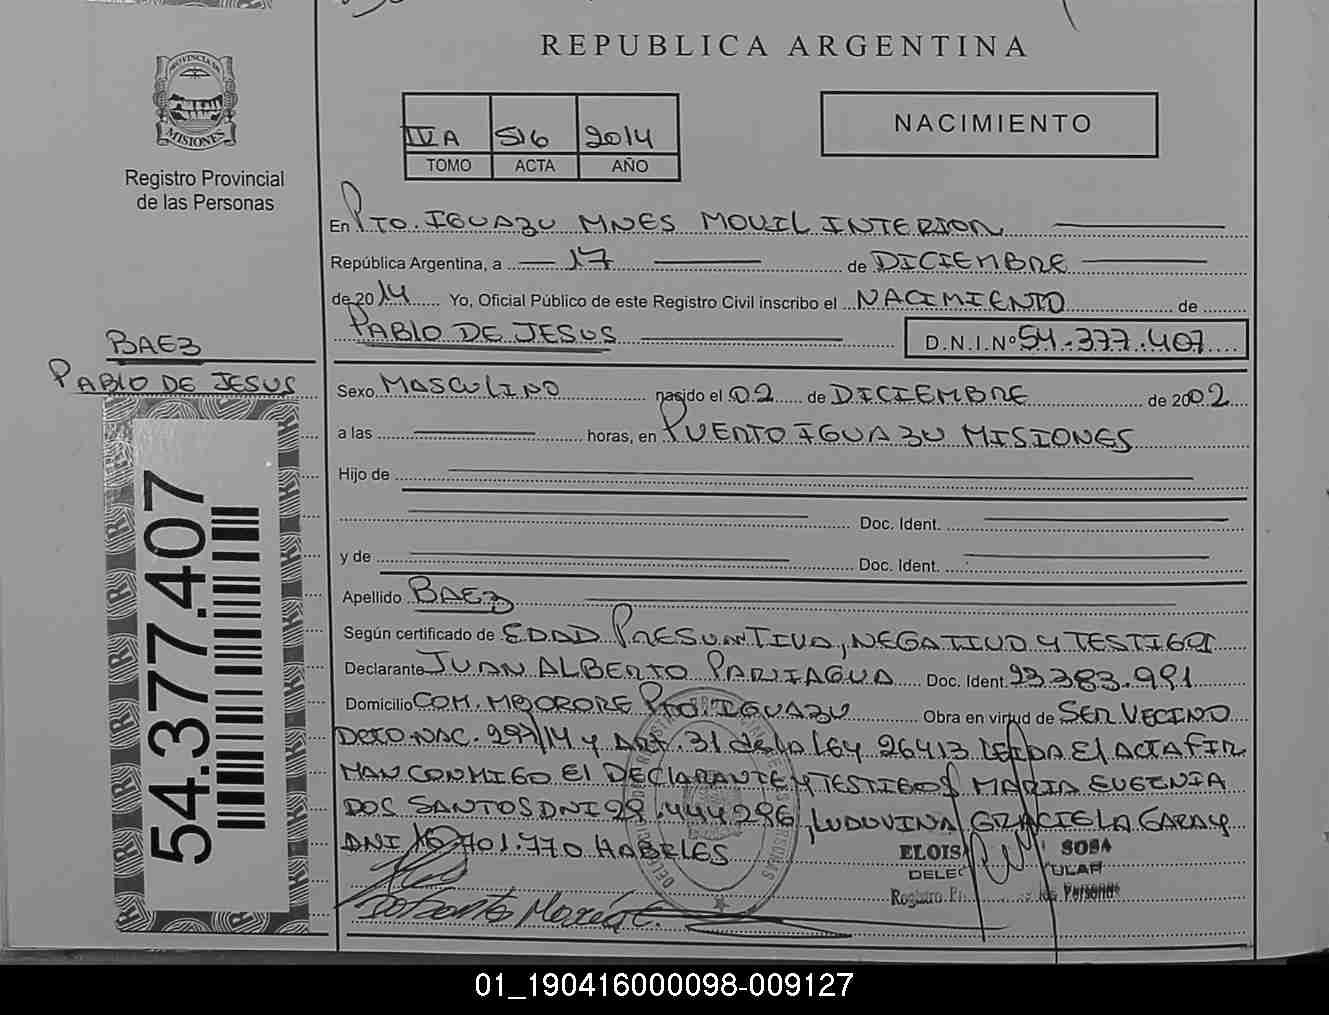 REPUBLICA ARGENTINA
PROVINCIA DE
MISIONES
Registro Provincial
de las Personas
IVA 516 2014
TOMO ACTA AÑO
NACIMIENTO
En PTO. IGUAZU MNES MOVIL INTERIOR
República Argentina, a 17 de DICIEMBRE
de 2014 Yo, Oficial Público de este Registro Civil inscribo el NACIMIENTO de
PABLO DE JESUS D.N.I.Nº 54.377.407
BAEZ
PABLO DE JESUS
54.377.407
Sexo MASCULINO nasido el 02 de DICIEMBRE de 2002
a las horas, en PUERTO IGUAZU MISIONES
Hijo de
Doc. Ident.
y de Doc. Ident.
Apellido BAEZ
Según certificado de EDAD PRESUNTIVA, NEGATIVO Y TESTIGOS
Declarante JUAN ALBERTO PARIAGUA Doc. Ident. 93.383.991
Domicilio COM. MBORORE PTO. IGUAZU Obra en virtud de SER VECINO
DCTO NAC. 297/14 y ART. 31 de la LEY 26413 LEIDA El ACTA FIR
MAN CONMIGO El DECLARANTE y TESTIGOS MARIA EUGENIA
DOS SANTOS DNI 29.444296, LUDOVINA GRACIELA GARAY
DNI 701.770 HABILES
ELOIS SOSA
DELEG ULAR
Registro P de las Personas
Dos Santos María E.
01_190416000098-009127